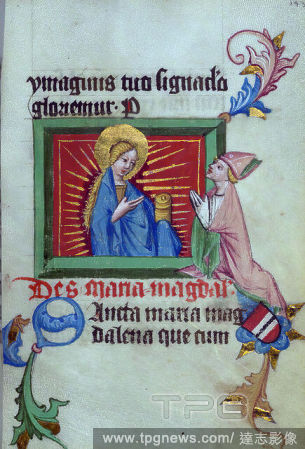 ymaginis tuo signaclo
gloriemur. P
Des maria magdal.
Sancta maria mag
dalena que cum
TPG
www.tpgnews.com/達志影像